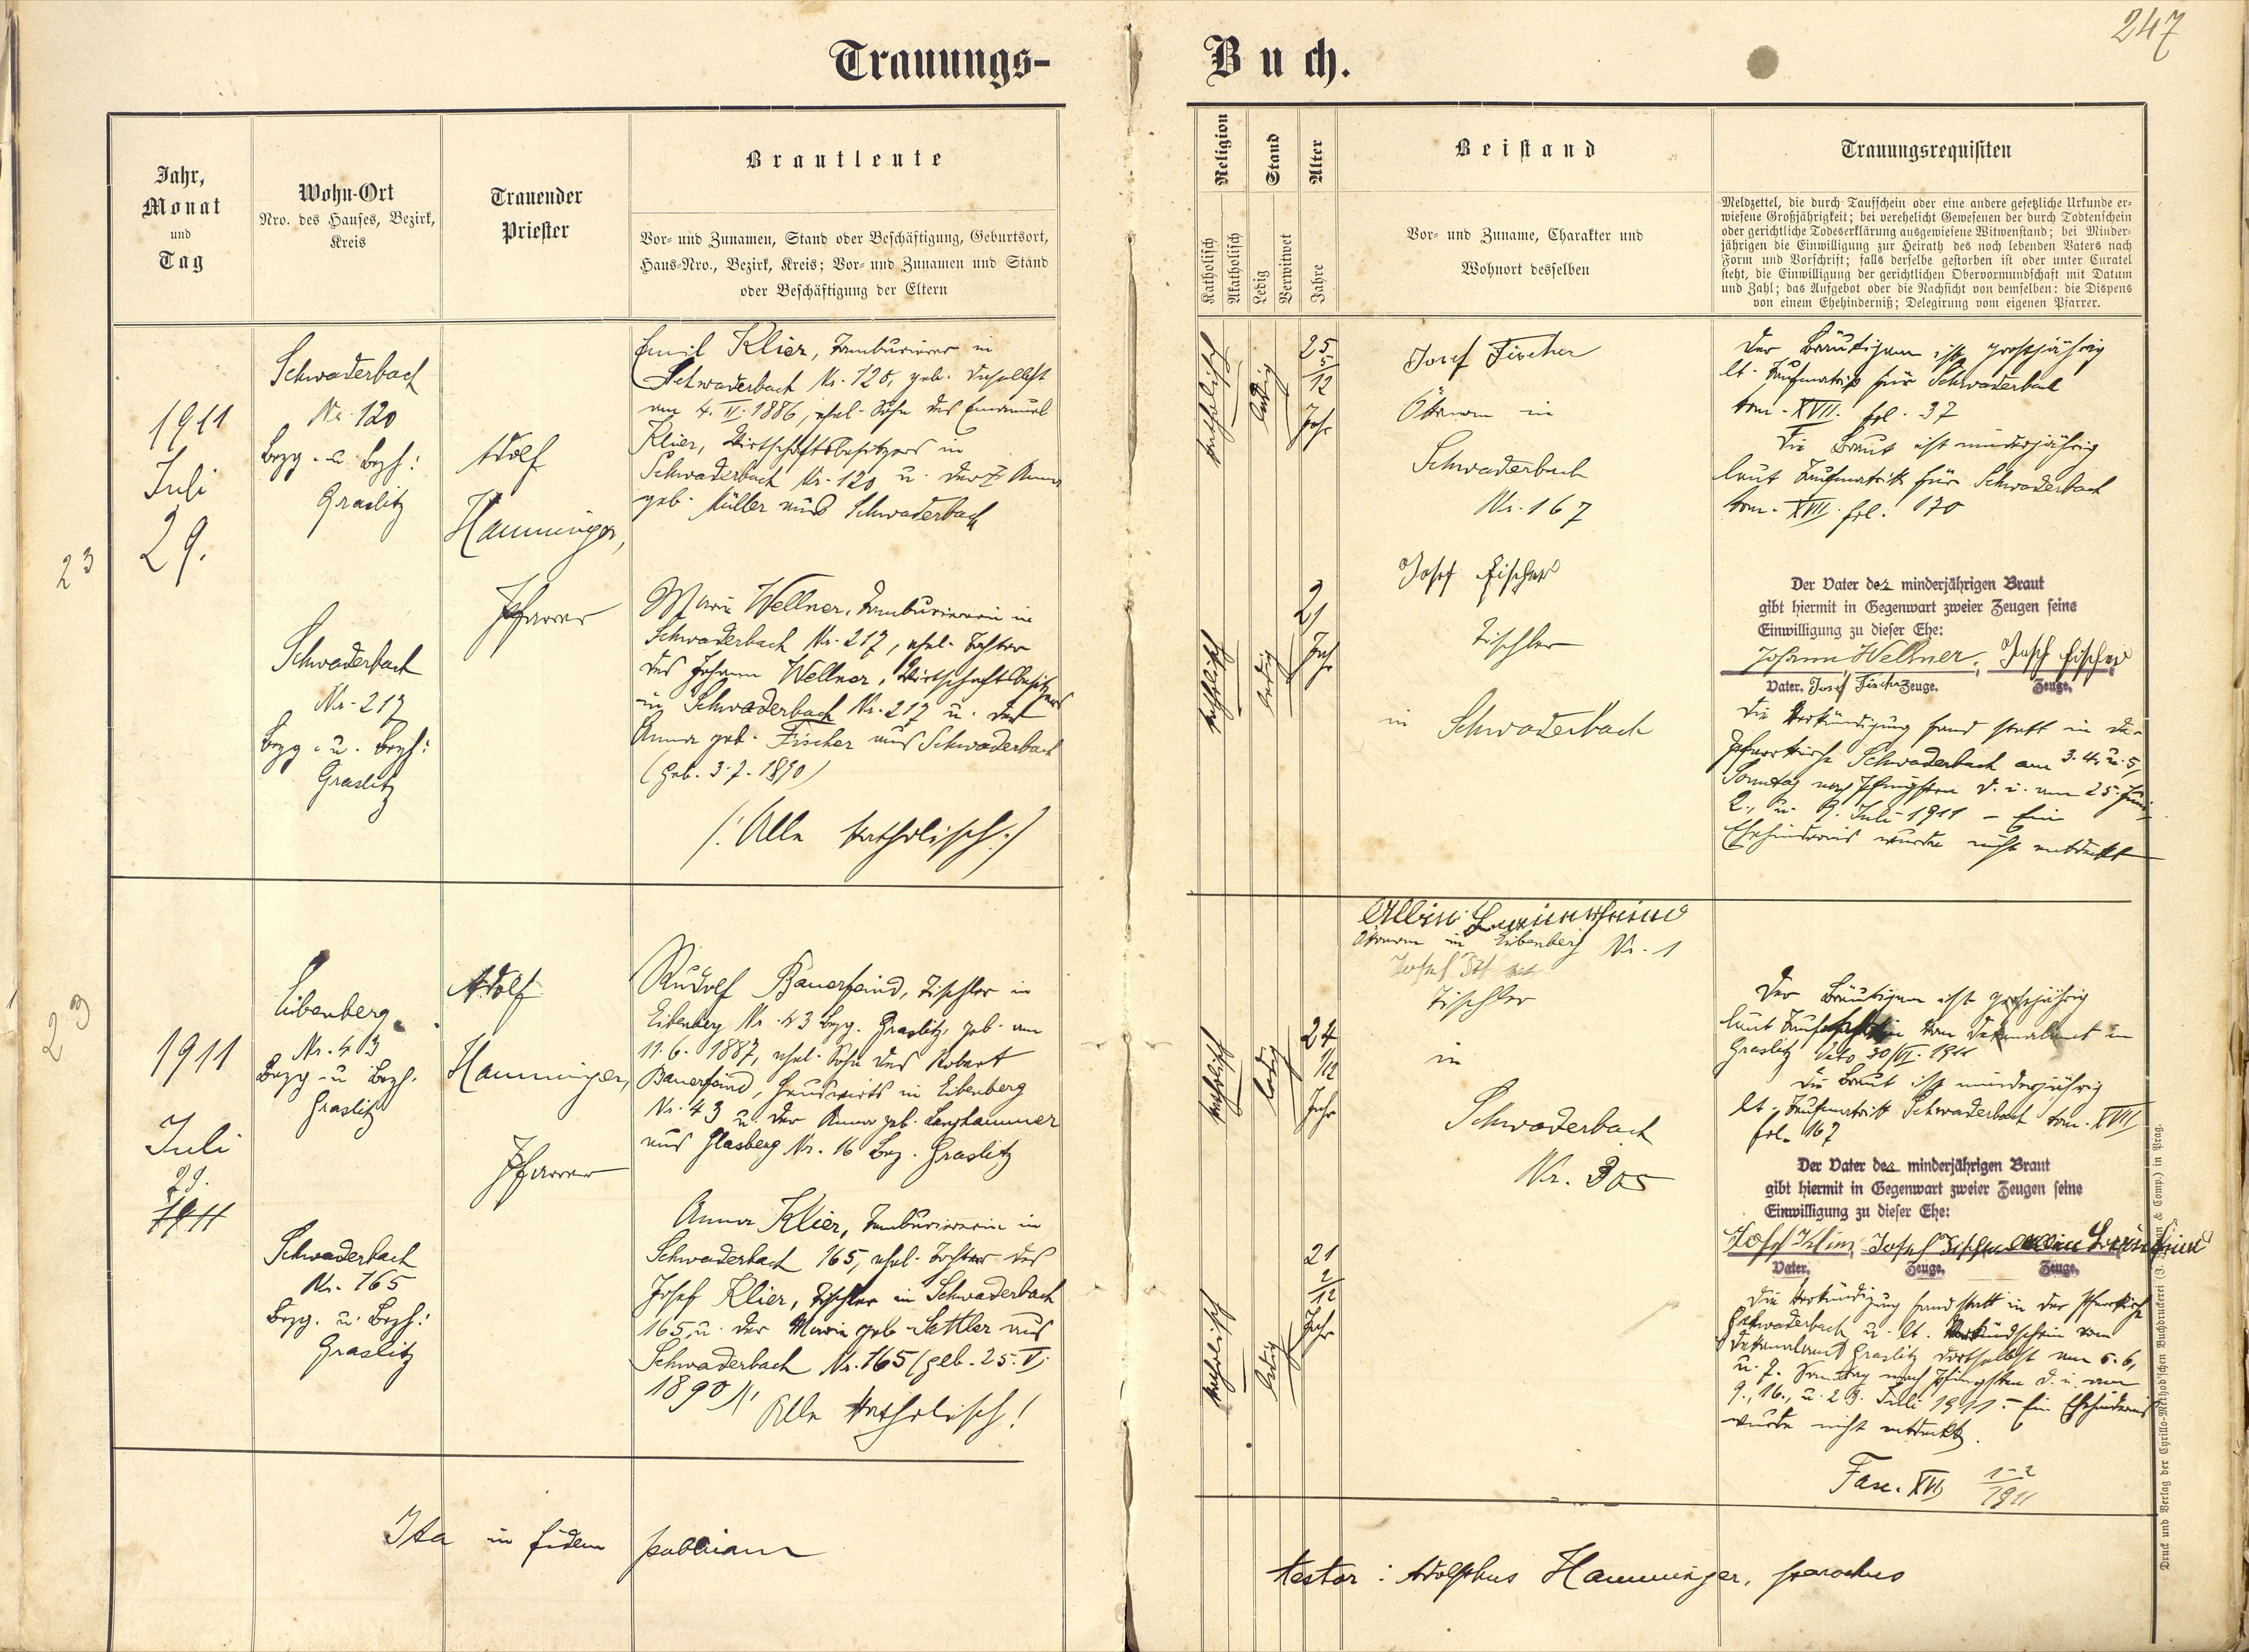 247
Trauungs-
Buch.
Jahr,
Monat
und
Tag
Wohn-Ort
Nro. des Hauses, Bezirk,
Kreis
Trauender
Priester
Brautleute
Vor- und Zunamen, Stand oder Beschäftigung, Geburtsort,
Haus-Nro., Bezirk, Kreis; Vor- und Zunamen und Stand
oder Beschäftigung der Eltern
Religion
Katholisch
Akatholisch
Stand
Ledig
Verwitwet
Alter
Jahre
Beistand
Vor- und Zuname, Charakter und
Wohnort desselben
Trauungsrequisiten
Meldzettel, die durch Taufschein oder eine andere gesetzliche Urkunde er-
wiesene Großjährigkeit; bei verehelicht Gewesenen der durch Todtenschein
oder gerichtliche Todeserklärung ausgewiesene Witwenstand; bei Minder-
jährigen die Einwilligung zur Heirath des noch lebenden Vaters nach
Form und Vorschrift; falls derselbe gestorben ist oder unter Curatel
steht, die Einwilligung der gerichtlichen Obervormundschaft mit Datum
und Zahl; das Aufgebot oder die Nachsicht von demselben: die Dispens
von einem Ehehinderniß; Delegirung vom eigenen Pfarrer.
23
1911
Juli
29.
Schwaderbach
Nr. 120
Bezg. u. Bezh:
Graslitz
Schwaderbach
Nr. 217
Bezg. u. Bezh:
Graslitz
Adolf
Hamminger,
Pfarrer
Emil Klier, Tambourierer in
Schwaderbach Nr. 120, geb. daselbst
am 4. II. 1886, ehel. Sohn des Emanuel
Klier, Wirtschaftsbesitzers in
Schwaderbach Nr. 120 u. der Anna
geb. Müller aus Schwaderbach
Marie Wellner, Tambouriererin in
Schwaderbach Nr. 217, ehel. Tochter
des Johann Wellner, Wirtschaftsbesitzers
in Schwaderbach Nr. 217 u. der
Anna geb. Fischer aus Schwaderbach
(geb. 3.7.1890)
/: Alle katholisch :/
katholisch
ledig
25
5/12
Jahr
katholisch
ledig
21
Jahr
Josef Fischer
Ökonom in
Schwaderbach
Nr. 167
Josef Fischer
Tischler
in Schwaderbach
Der Bräutigam ist großjährig
lt. Taufmatrik für Schwaderbach
tom. XVII. fol. 37
Die Braut ist minderjährig
laut Taufmatrik für Schwaderbach
tom. XVII. fol. 170
Der Vater der minderjährigen Braut
gibt hiermit in Gegenwart zweier Zeugen seine
Einwilligung zu dieser Ehe:
Johann Wellner, Josef Fischer
Vater. Josef Fischer Zeuge. Zeuge.
Die Verkündigung fand statt in der
Pfarrkirche Schwaderbach am 3. 4. u. 5.
Sonntag nach Pfingsten d. i. am 25. Juni,
2., u. 9. Juli 1911 – Ein
Ehehindernis wurde nicht entdeckt
23
1911
Juli
29.
1911
Eibenberg
Nr. 43
Bezg. u. Bezh.
Graslitz
Schwaderbach
Nr. 165
Bezg. u. Bezh:
Graslitz
Adolf
Hamminger,
Pfarrer
Rudolf Bauerfeind, Tischler in
Eibenberg Nr. 43 Bezg. Graslitz, geb. am
11.6.1887, ehel. Sohn des Robert
Bauerfeind, Hauswirts in Eibenberg
Nr. 43 u. der Anna geb. Langhammer
aus Glasberg Nr. 16 Bez. Graslitz
Anna Klier, Tambouriererin in
Schwaderbach 165, ehel. Tochter des
Josef Klier, Tischler in Schwaderbach
165, u. der Maria geb. Sattler aus
Schwaderbach Nr. 165 (geb. 25. V.
1890)
Alle katholisch!
katholisch
ledig
24
1/12
Jahr
katholisch
ledig
21
2/12
Jahr
Albin
Ökonom in Eibenberg Nr. 1
Josef
Tischler
in
Schwaderbach
Nr. 305
Der Bräutigam ist großjährig
laut Taufschein vom Dekanalamt in
Graslitz dato 30/VI. 1911
Die Braut ist minderjährig
lt. Taufmatrik Schwaderbach tom. XVII
fol. 167
Der Vater der minderjährigen Braut
gibt hiermit in Gegenwart zweier Zeugen seine
Einwilligung zu dieser Ehe:
Josef Klier, Josef Fischer
Vater. Zeuge. Zeuge.
Die Verkündigung fand statt in der Pfarrkirche
Schwaderbach u. lt. Verkündschein vom
Dekanalamt Graslitz dortselbst am 5. 6.
u. 7. Sonntag nach Pfingsten d. i. am
9., 16., u. 23. Juli 1911. – Ein Ehehindernis
wurde nicht entdeckt.
Fasc. XVII 1-2/1911
Ita in fidem publicam
testor: Adolphus Hamminger, parochus
Druck und Verlag der Cyrillo-Method'schen Buchdruckerei & Comp.) in Prag.